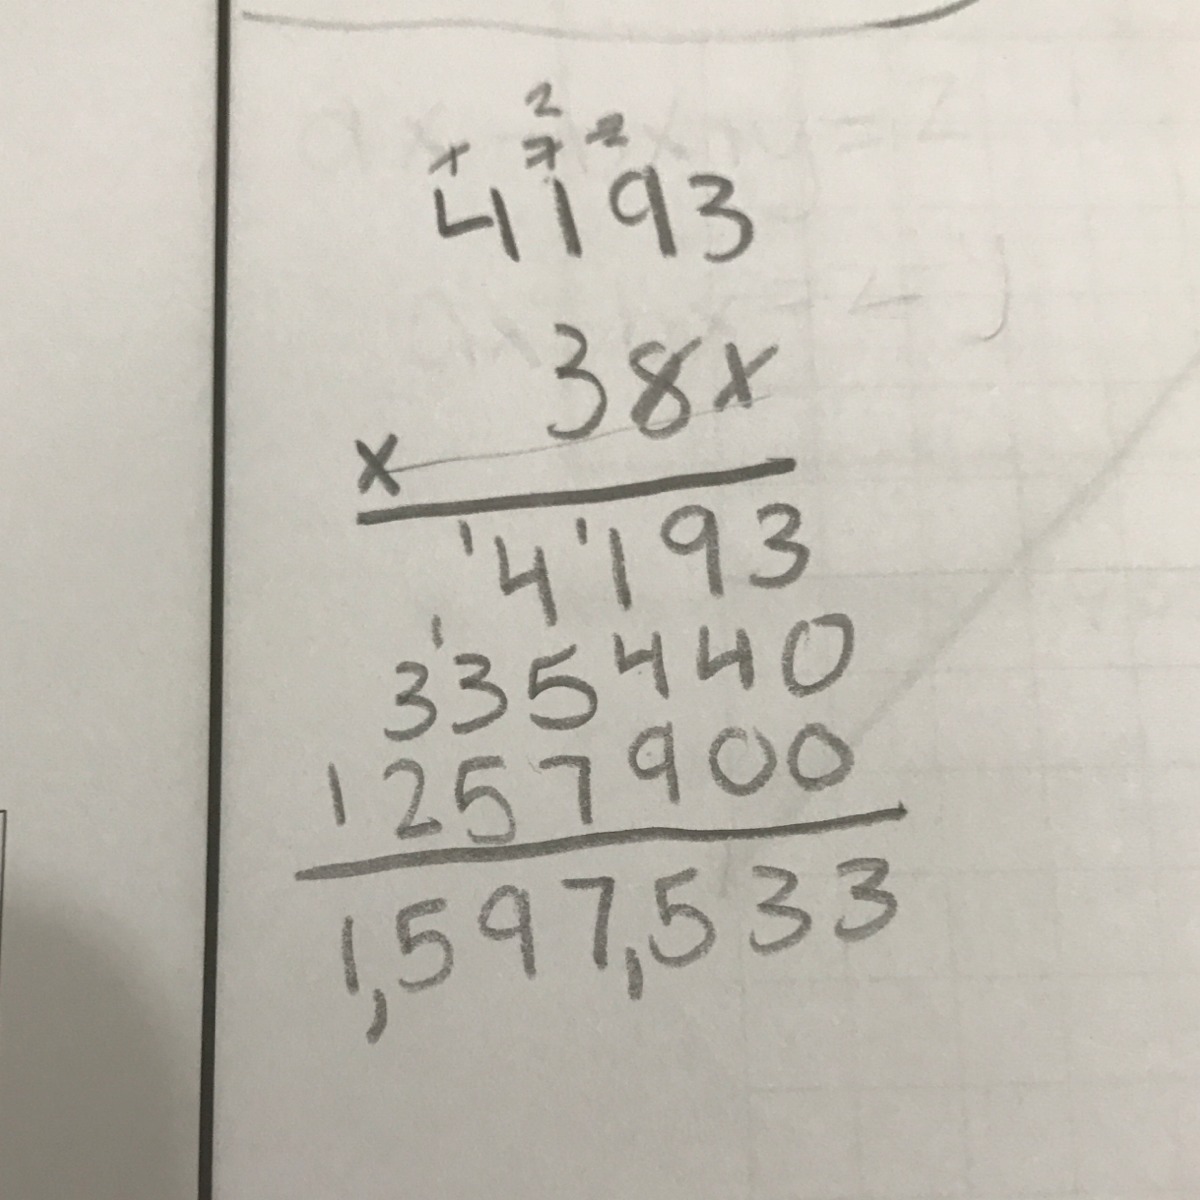 2
x 7 2
4193
38x
x
1 1
4193
1
335440
1257900
1,597,533